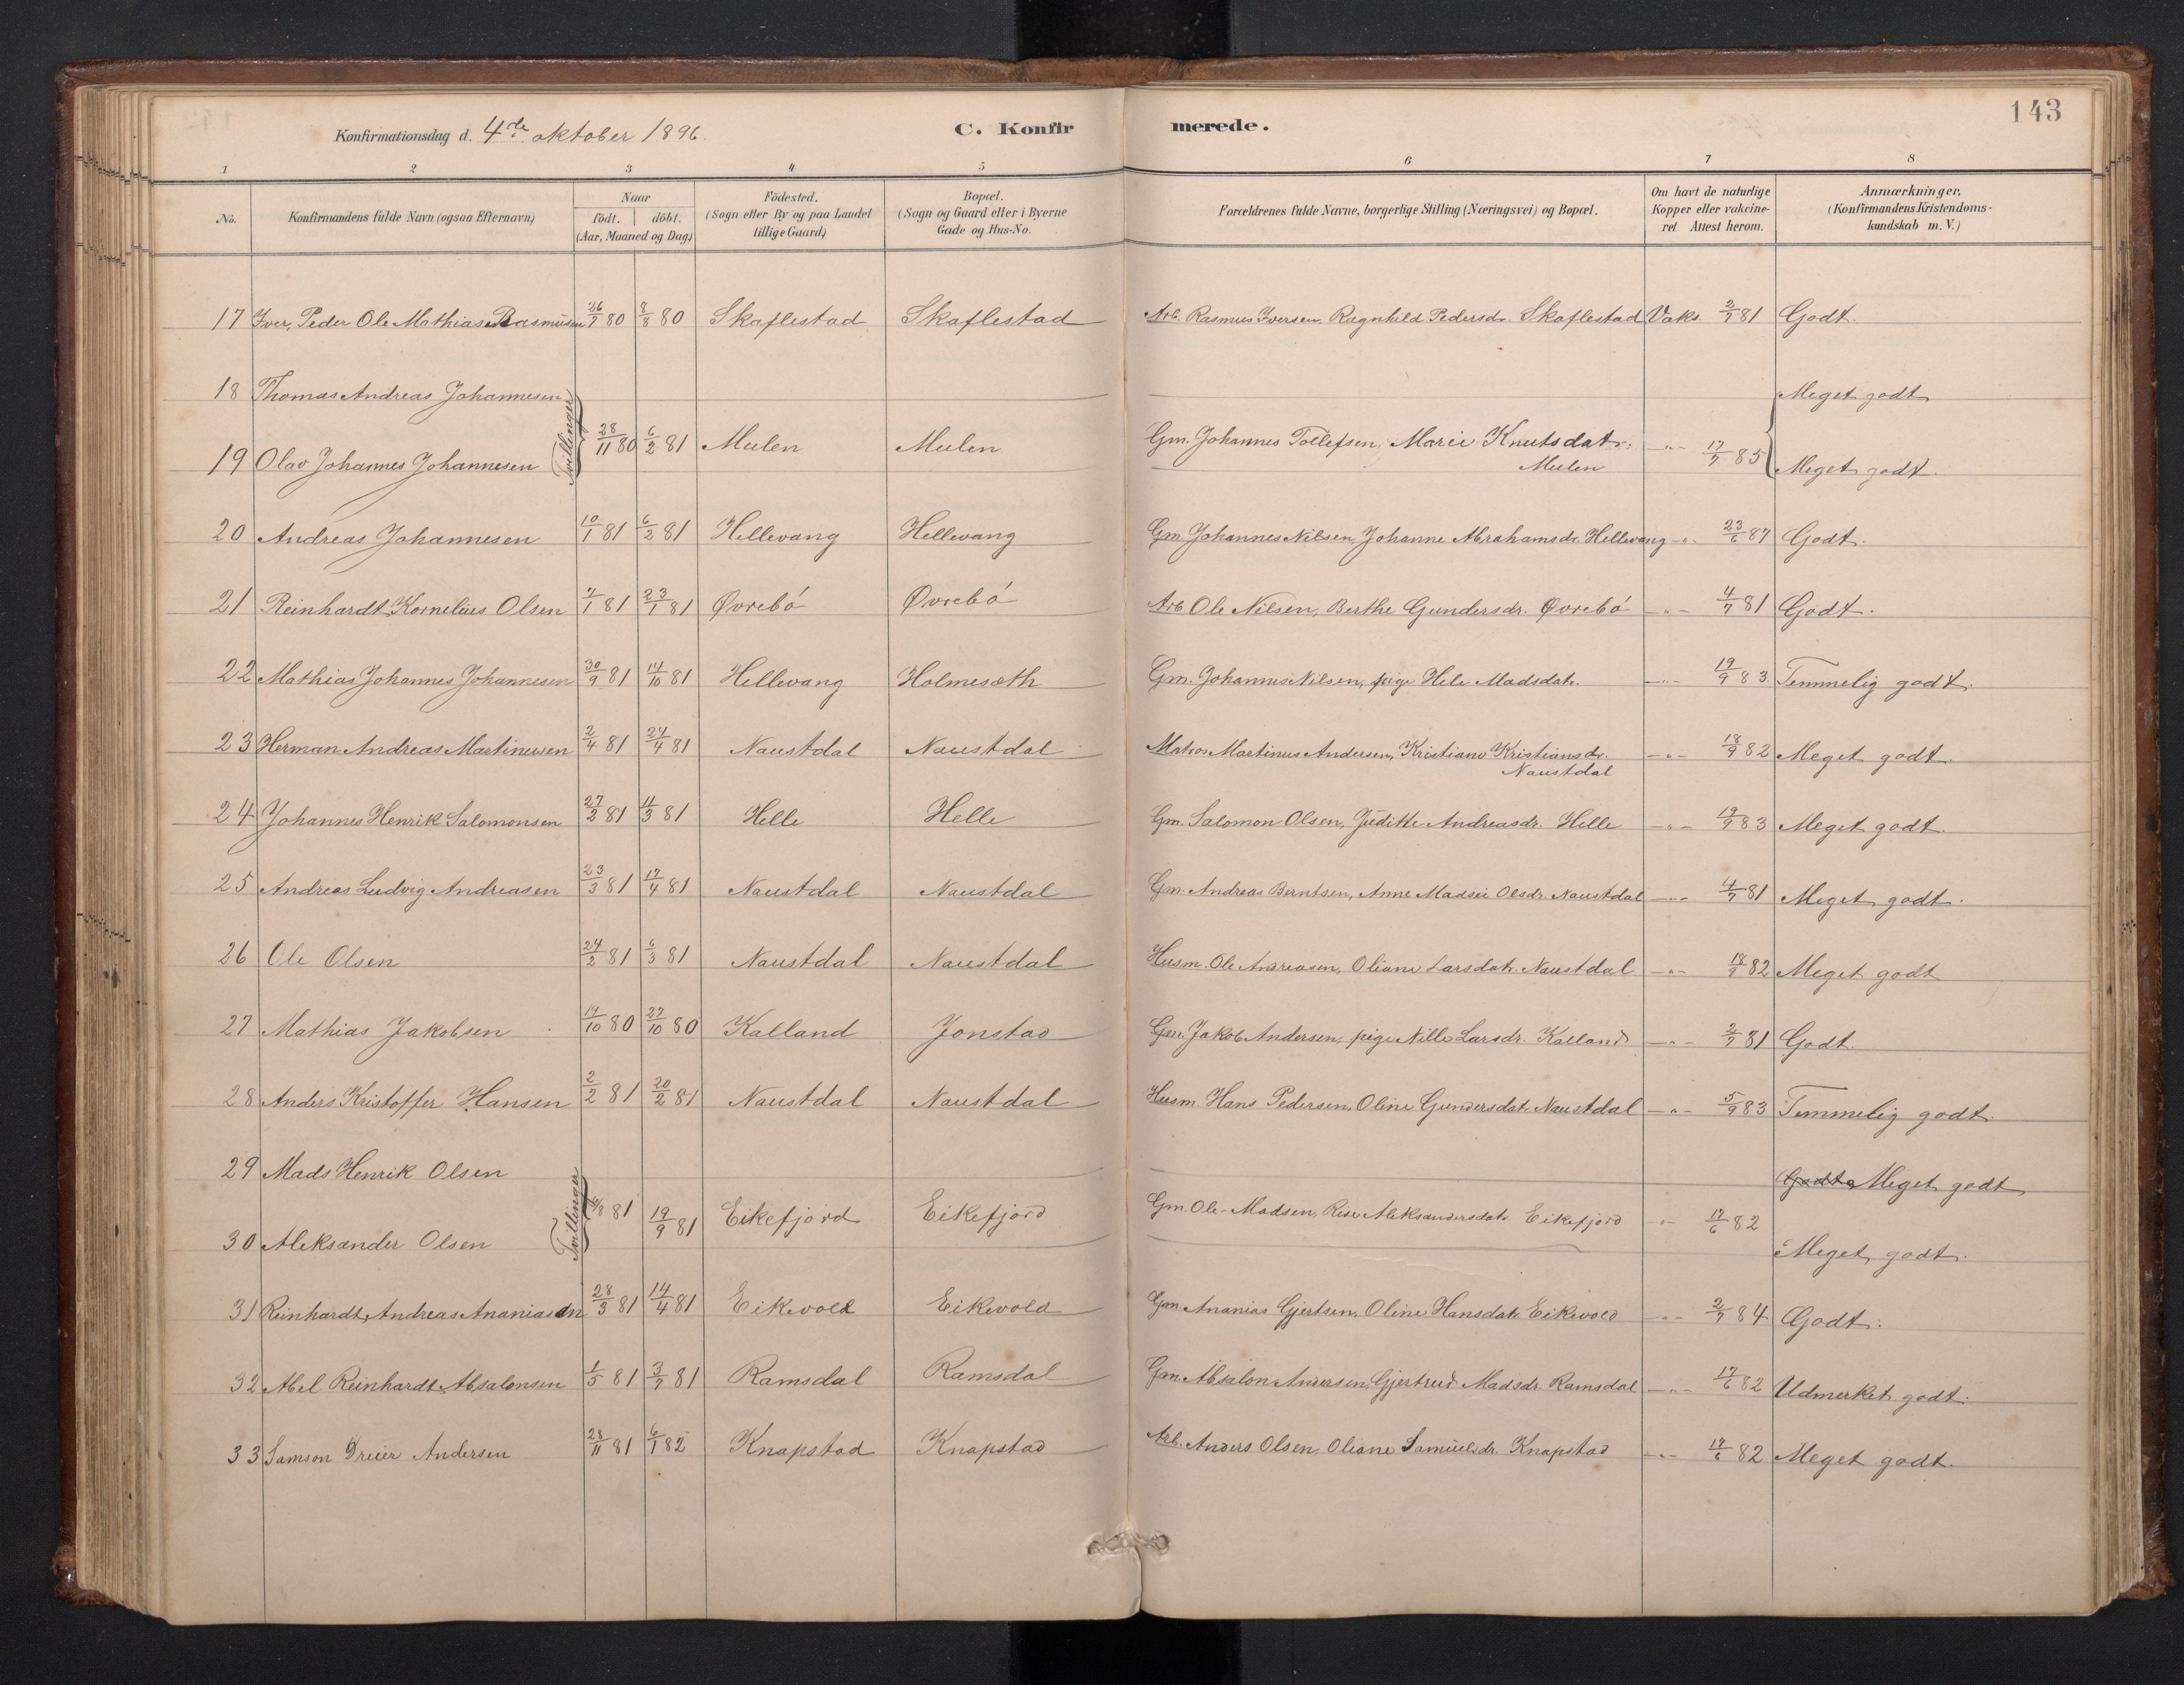 143
Konfirmationsdag d. 4de oktober 1896. C. Konfirmerede.
1 2 3 4 5 6 7 8
No. Konfirmandens fulde Navn (ogsaa Efternavn) Naar födt. döbt. (Aar, Maaned og Dag) Födested. (Sogn eller By og paa Landet tillige Gaard) Bopæl. (Sogn og Gaard eller i Byerne Gade og Hus-No. Forældrenes fulde Navne, borgerlige Stilling (Næringsvei) og Bopæl. Om havt de naturlige Kopper eller vakcineret. Attest herom. Anmærkninger. (Konfirmandens Kristendomskundskab m. V.)
17 Iver Peder Ole Mathias Rasmusen 26/7 80 8/8 80 Skaflestad Skaflestad Arb. Rasmus Iversen, Ragnhild Pedersdr. Skaflestad Vaks. 2/7 81 Godt.
18 Thomas Andreas Johannesen Meget godt
Tvillinger 28/11 80 6/2 81 Mulen Mulen Gm. Johannes Tollefsen, Marie Knutsdatr. Mulen -"- 17/7 85
19 Olav Johannes Johannesen Meget godt.
20 Andreas Johannesen 10/1 81 6/2 81 Hellevang Hellevang Gm. Johannes Nilsen, Johanne Abrahamsdr. Hellevang -"- 23/6 87 Godt.
21 Reinhardt Kornelius Olsen 7/1 81 23/1 81 Øvrebó Øvrebó Arb Ole Nilsen, Berthe Gundersdr. Øvrebó -"- 4/7 81 Godt.
22 Mathias Johannes Johannesen 30/9 81 14/10 81 Hellevang Holmesæth Gm. Johannes Nilsen, pige Hele Madsdatr. -"- 19/9 83 Temmelig godt.
23 Herman Andreas Martinusen 2/4 81 24/4 81 Naustdal Naustdal Matros Martinus Andersen, Kristiane Kristiansdr. Naustdal -"- 18/9 82 Meget godt.
24 Johannes Henrik Salomonsen 27/2 81 11/3 81 Helle Helle Gm. Salomon Olsen, Juditte Andreasdr. Helle -"- 19/9 83 Meget godt.
25 Andreas Ludvig Andreasen 23/3 81 17/4 81 Naustdal Naustdal Gm. Andreas Berntsen, Anne Madsie Olsdr. Naustdal -"- 4/7 81 Meget godt.
26 Ole Olsen 24/2 81 6/3 81 Naustdal Naustdal Husm. Ole Andreasen, Oliane Larsdatr. Naustdal -"- 82 Meget godt
27 Mathias Jakobsen 80 27/10 80 Kalland Jonstad Gm. Jakob Andersen, pige Nille Larsdr. Kalland -"- 2/7 81 Godt.
28 Anders Kristoffer Hansen 2/2 81 20/2 81 Naustdal Naustdal Husm. Hans Pedersen, Oline Gundersdatr. Naustdal -"- 5/9 83 Temmelig godt.
29 Mads Henrik Olsen Godt. Meget godt
Tvillinger 81 19/9 81 Eikefjord Eikefjord Gm. Ole Madsen, Rise Aleksandersdatr. Eikefjord -"- 17/6 82
30 Aleksander Olsen Meget godt.
31 Reinhardt Andreas Ananiasen 28/3 81 14/4 81 Eikevold Eikevold Gm. Ananias Gjertsen, Oline Hansdatr. Eikevold -"- 2/7 84 Godt.
32 Abel Reinhardt Absalonsen 1/5 81 3/7 81 Ramsdal Ramsdal Gm. Absalon Andersen, Gjertrud Madsdr. Ramsdal -"- 17/6 82 Udmerket godt.
33 Samson Dreier Andersen 28/11 81 6/1 82 Knapstad Knapstad Arb. Anders Olsen, Oliane Samuelsdr. Knapstad -"- 17/6 82 Meget godt.